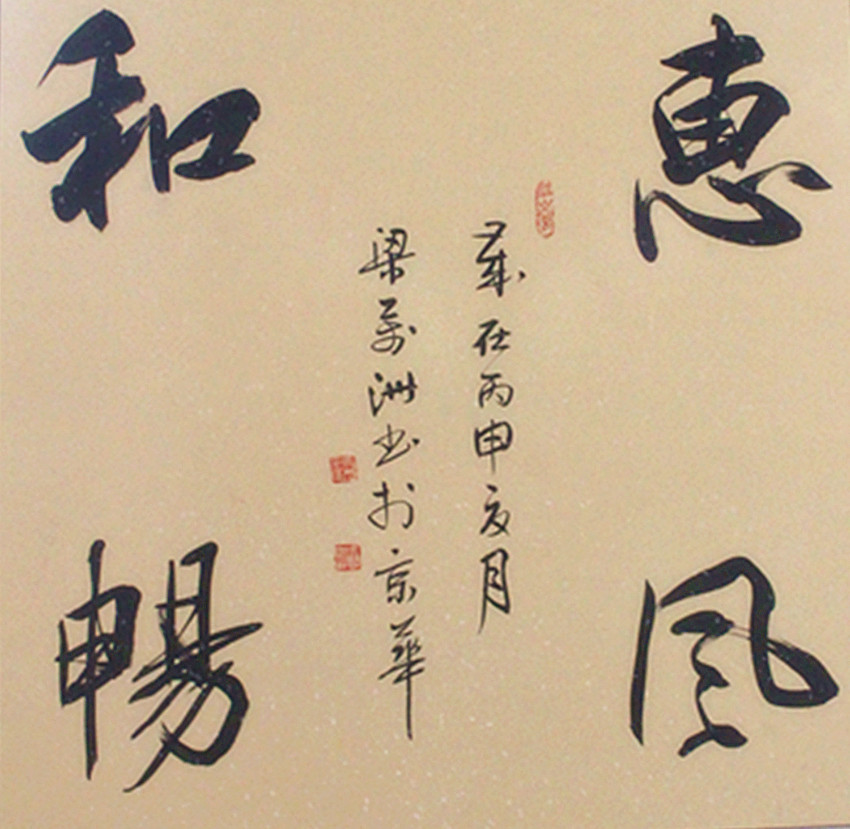 惠風
和暢
歲在丙申夏月
梁萬洲書於京華